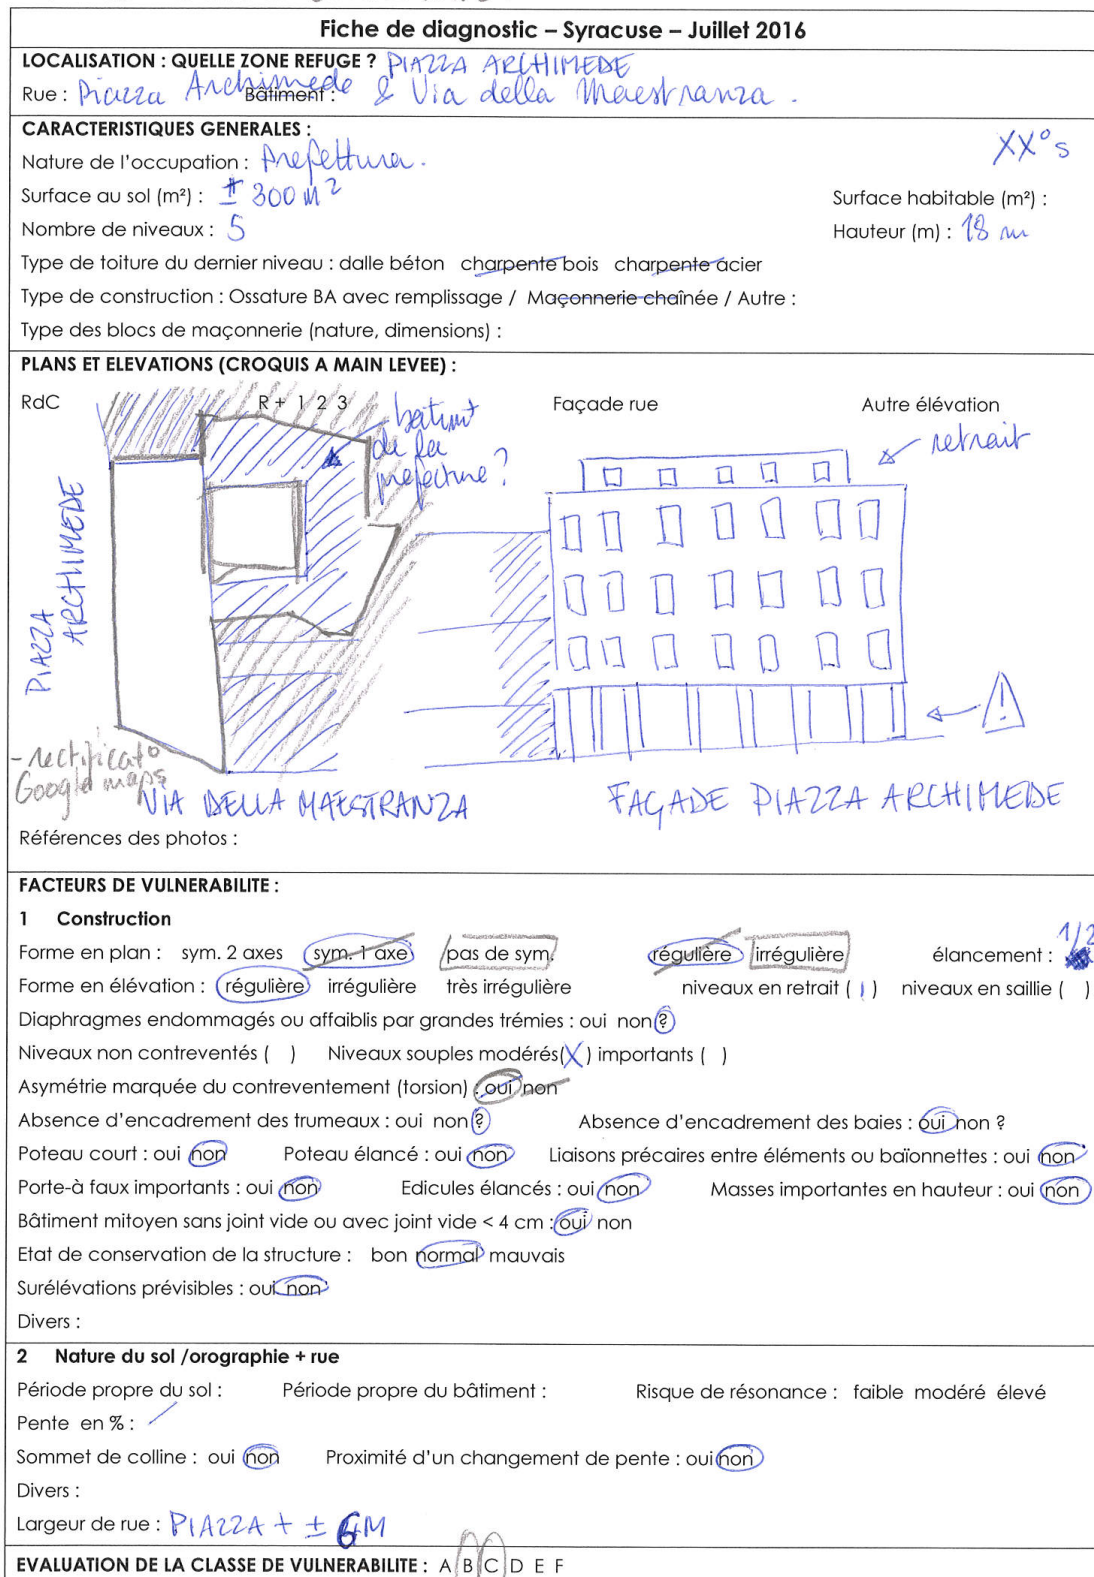 Fiche de diagnostic – Syracuse – Juillet 2016
LOCALISATION : QUELLE ZONE REFUGE ? PIAZZA ARCHIMEDE
Rue : Piazza Archimede Bâtiment : & Via della Maestranza .
CARACTERISTIQUES GENERALES :
XX° s
Nature de l'occupation : Prefettura .
Surface au sol (m²) : ± 300 m² Surface habitable (m²) :
Nombre de niveaux : 5 Hauteur (m) : 18 m
Type de toiture du dernier niveau : dalle béton charpente bois charpente acier
Type de construction : Ossature BA avec remplissage / Maçonnerie chaînée / Autre :
Type des blocs de maçonnerie (nature, dimensions) :
PLANS ET ELEVATIONS (CROQUIS A MAIN LEVEE) :
RdC R+ 1 2 3 Façade rue Autre élévation
bâtiment
de la
prefecture ?
retrait
PIAZZA
ARCHIMEDE
- rectificat°
Google maps
VIA DELLA MAESTRANZA FAÇADE PIAZZA ARCHIMEDE
Références des photos :
FACTEURS DE VULNERABILITE :
1 Construction
Forme en plan : sym. 2 axes sym. 1 axe pas de sym. régulière irrégulière élancement : 1/2
Forme en élévation : régulière irrégulière très irrégulière niveaux en retrait ( 1 ) niveaux en saillie ( )
Diaphragmes endommagés ou affaiblis par grandes trémies : oui non ?
Niveaux non contreventés ( ) Niveaux souples modérés(X) importants ( )
Asymétrie marquée du contreventement (torsion) : oui non
Absence d'encadrement des trumeaux : oui non ? Absence d'encadrement des baies : oui non ?
Poteau court : oui non Poteau élancé : oui non Liaisons précaires entre éléments ou baïonnettes : oui non
Porte-à faux importants : oui non Edicules élancés : oui non Masses importantes en hauteur : oui non
Bâtiment mitoyen sans joint vide ou avec joint vide < 4 cm : oui non
Etat de conservation de la structure : bon normal mauvais
Surélévations prévisibles : oui non
Divers :
2 Nature du sol /orographie + rue
Période propre du sol : Période propre du bâtiment : Risque de résonance : faible modéré élevé
Pente en % : /
Sommet de colline : oui non Proximité d'un changement de pente : oui non
Divers :
Largeur de rue : PIAZZA + ± 6M
EVALUATION DE LA CLASSE DE VULNERABILITE : A B C D E F